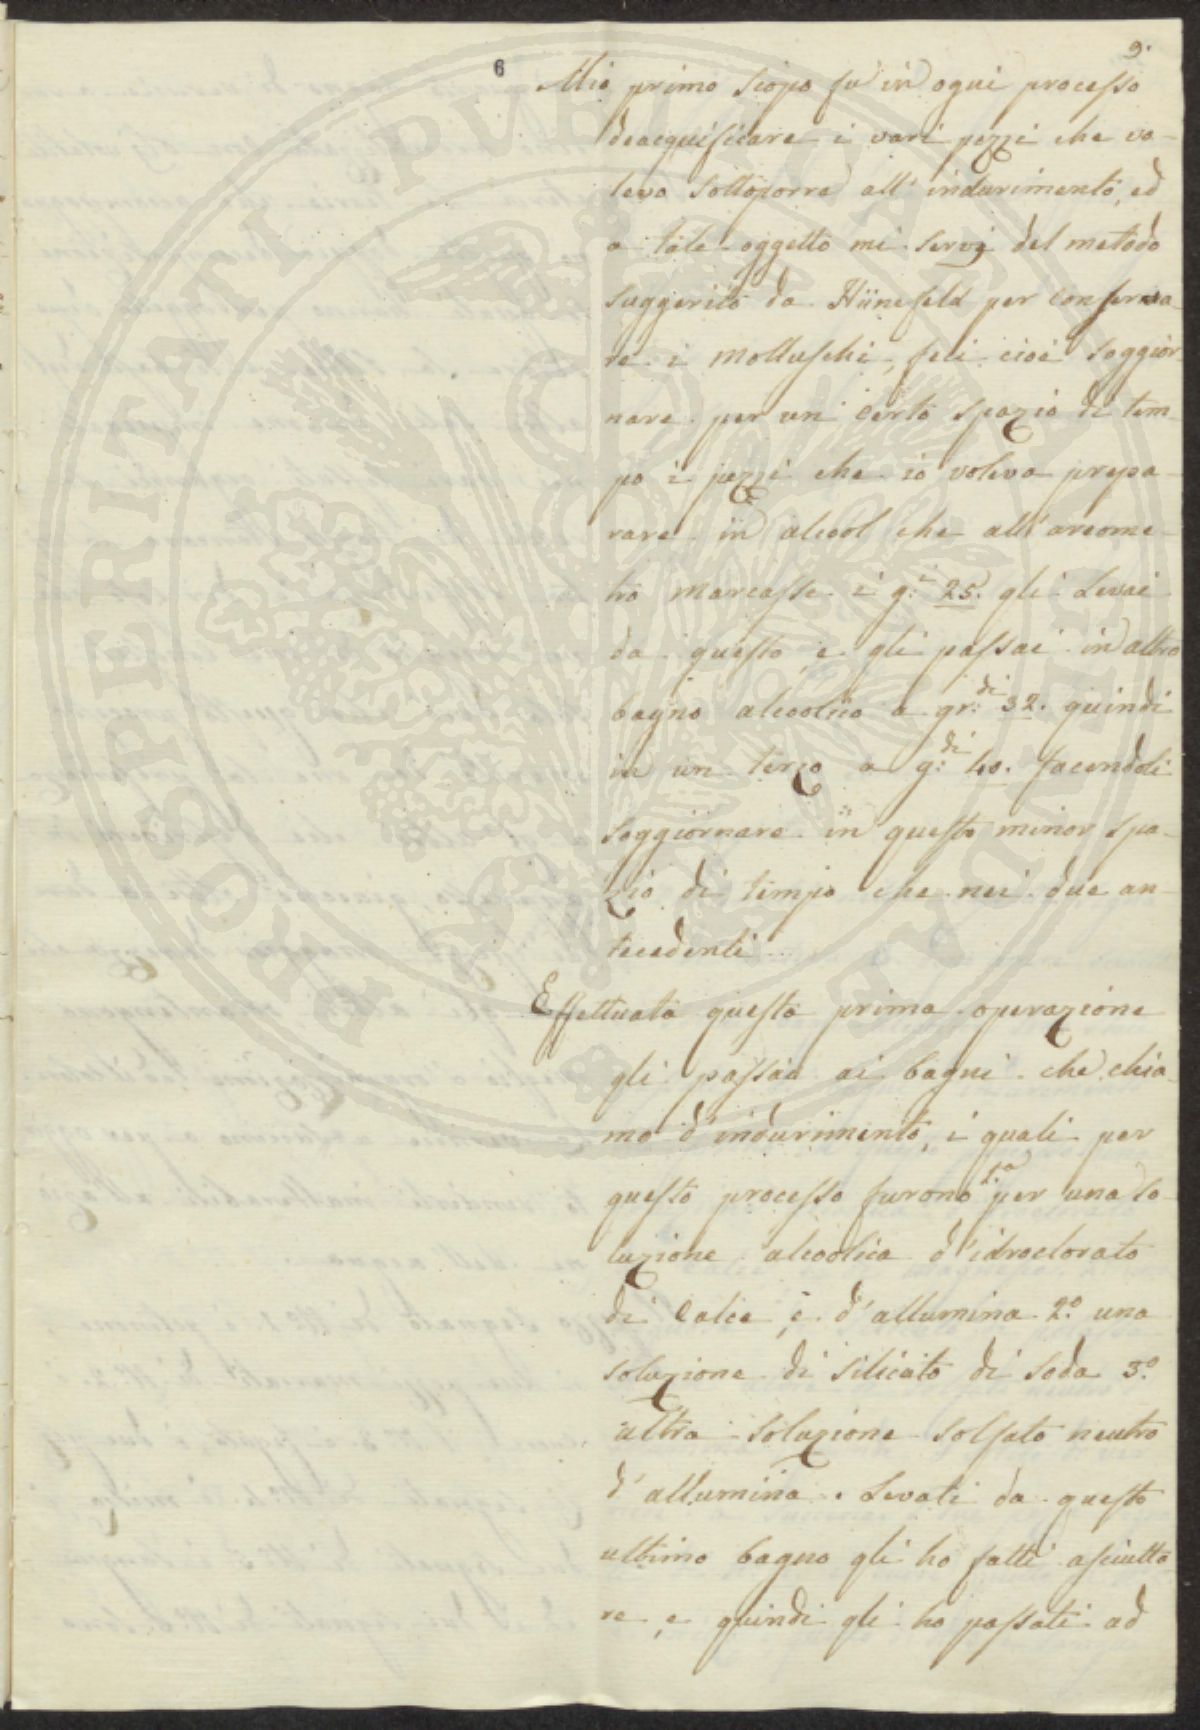 9.
6
Mio primo scopo fu in ogni processo
deacquificare i vari pezzi che vo-
levo sottoporre all'indurimento, ed
a tale oggetto mi servj del metodo
suggerito da Hünefeld per conserva-
re i molluschi, feci cioè soggior-
nare per un certo spazio di tem-
po i pezzi che io voleva prepa-
rare in alcool che all'areome-
tro marcasse i g.i 25. gli levai
da questo, e gli passai in altro
bagno alcoolico a gr:di 32. quindi
in un terzo a g:di 40. facendoli
soggiornare in questo minor spa-
zio di tempo che nei due an-
tecedenti.
Effettuata questa prima operazione
gli passai ai bagni che chia-
mo d'indurimento, i quali per
questo processo furono 1.o per una so-
luzione alcoolica d'idroclorato
di calce, e d'allumina 2.o una
soluzione di silicato di soda 3.o
altra soluzione solfato neutro
d'allumina. Levati da questo
ultimo bagno gli ho fatti asciutta-
re, e quindi gli ho passati ad
PROSPERITATI PUBLICAE AUGENDAE